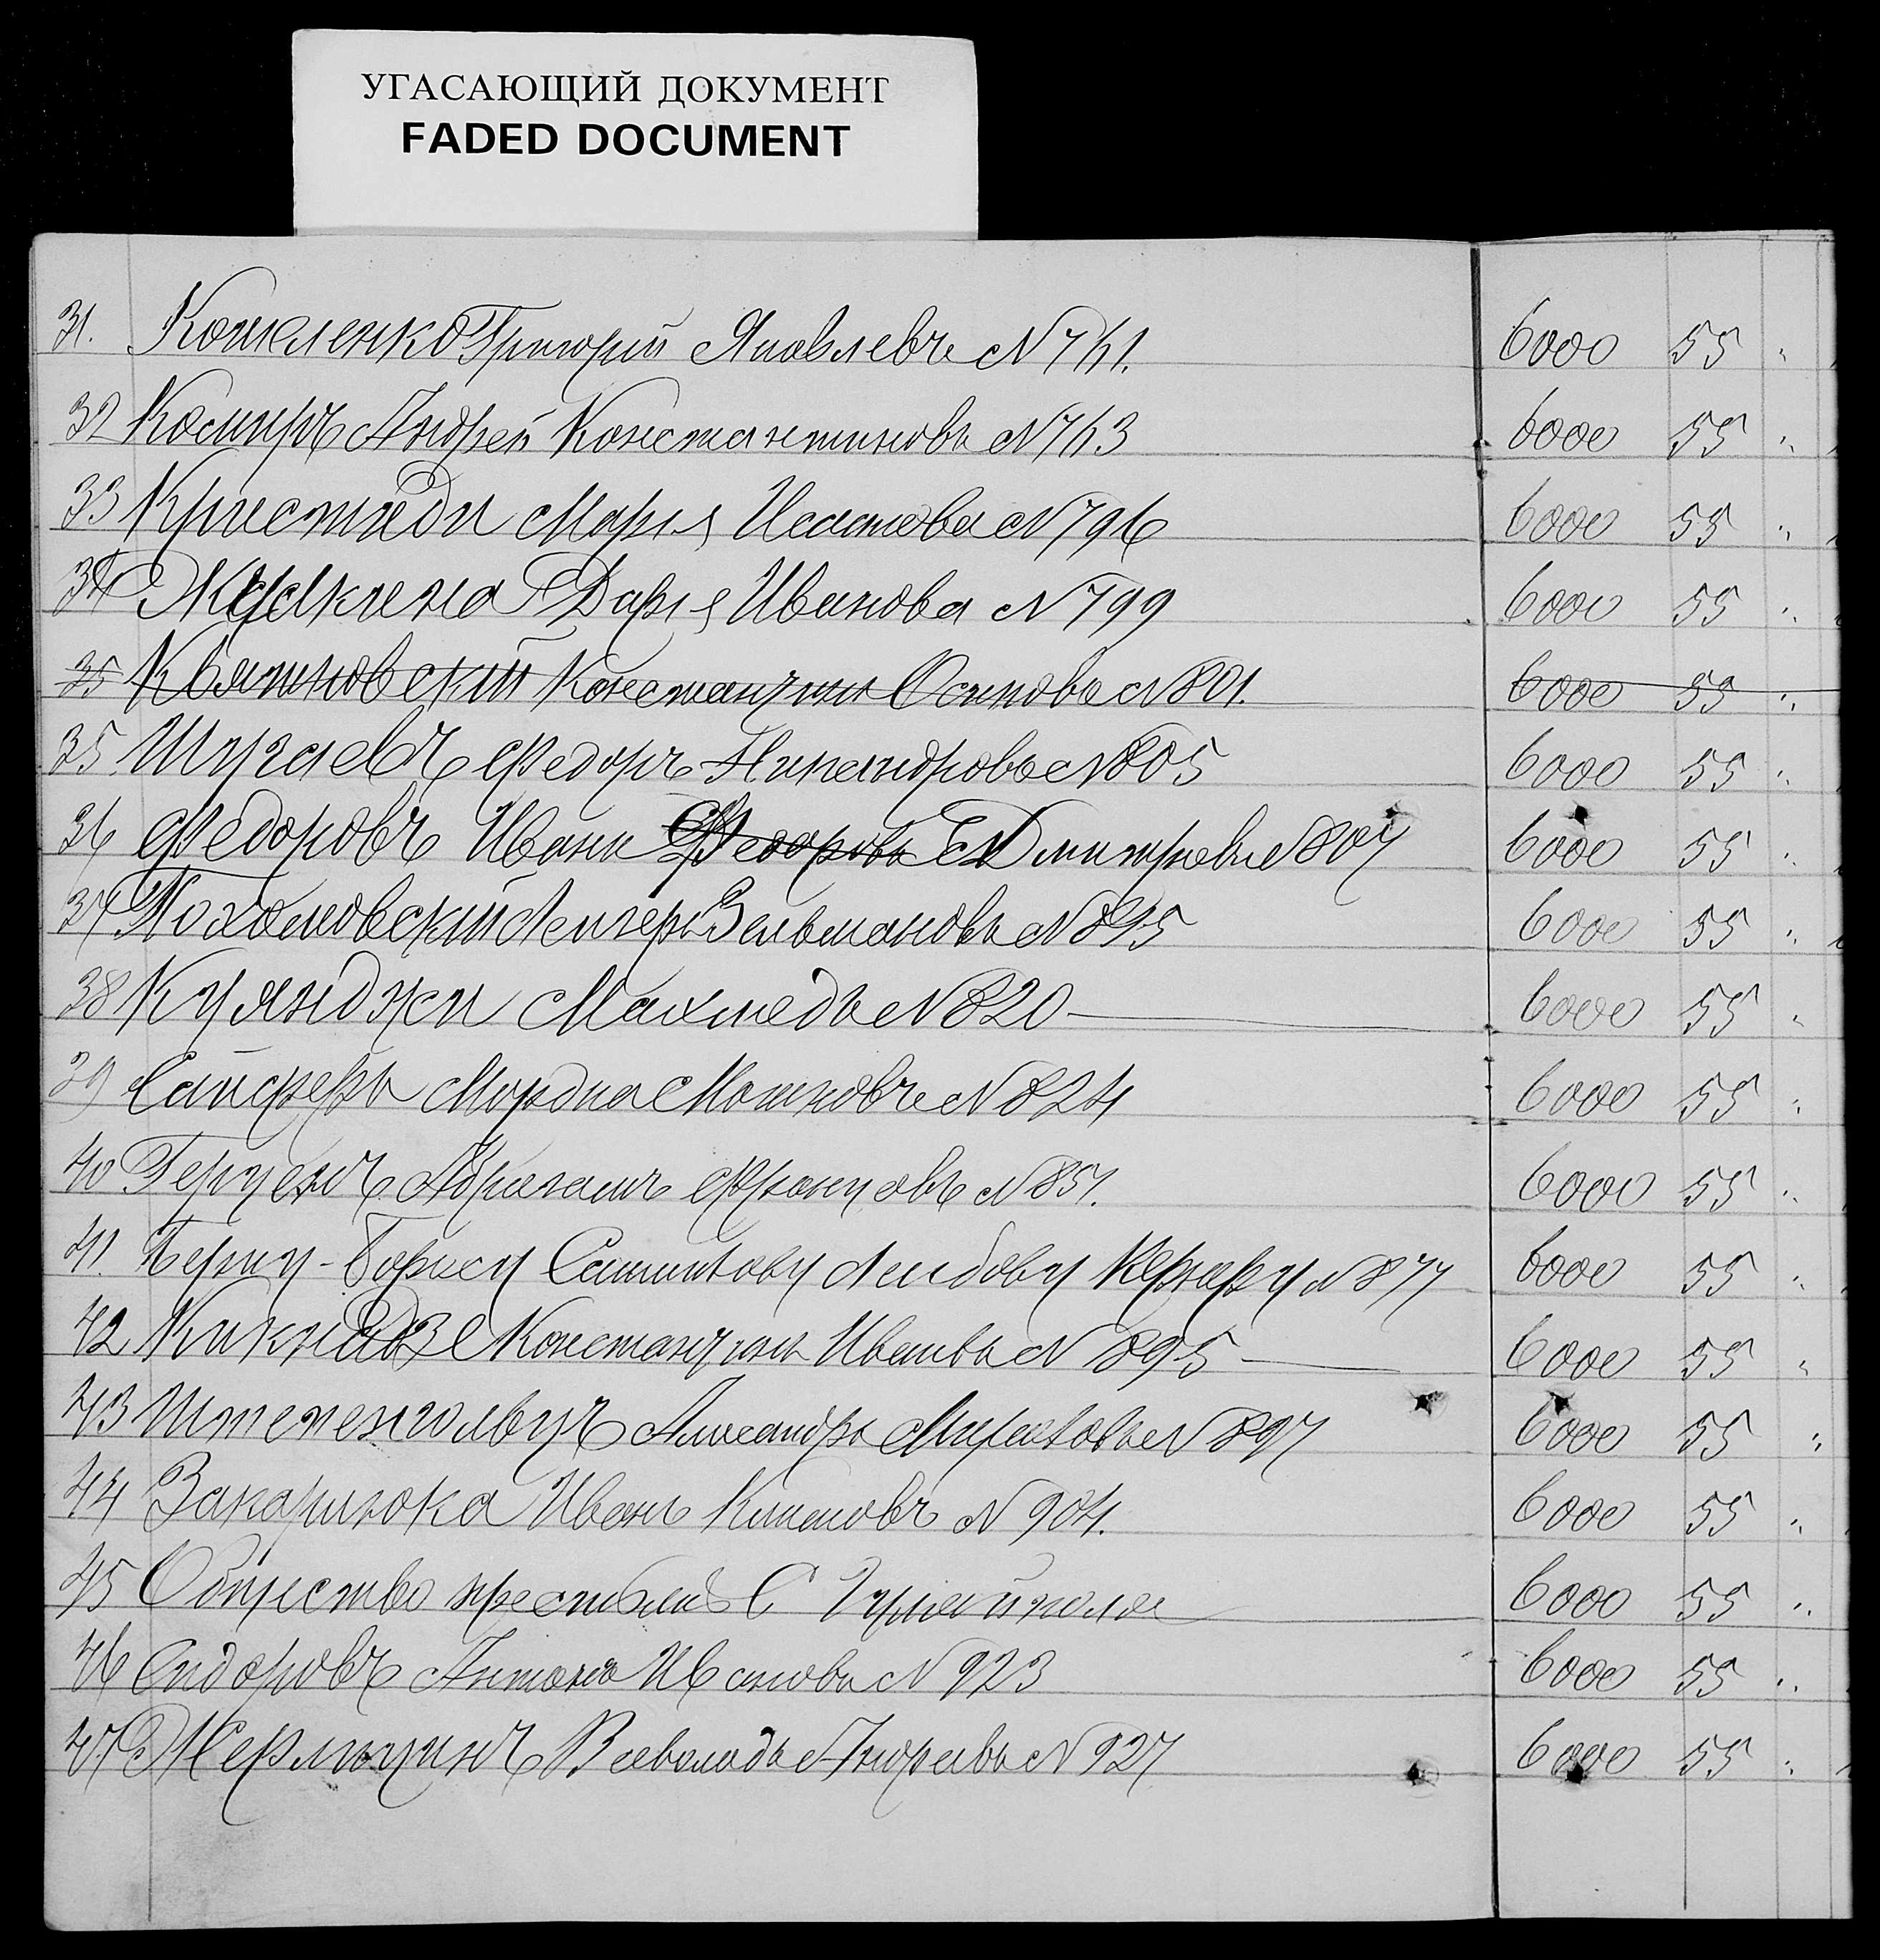 УГАСАЮЩИЙ ДОКУМЕНТ
FADED DOCUMENT
31. Кошеленко Григорий Яковлевъ № 761. 6000 55 "
32 Андрей Константиновъ № 763 6000 55 "
33 Кристиди Марія № 796 6000 55 "
34 Дарія Иванова № 799 6000 55 "
35 Квятковскій Константинъ Осиповъ № 801. 6000 55 "
35. Шугаевъ Федоръ Никандровъ № 805 6000 55 "
36 Федоровъ Иванъ Федоровъ Дмитріевъ № 807 6000 55 "
37 Лейзеръ Зельмановъ № 815 6000 55 "
38 Куянджи Махмедъ № 820 6000 55 "
39 Сайферъ Мордка Мошковъ № 824 6000 55 "
40 Герценъ Абрагамъ Францовъ № 851. 6000 55 "
41. Берку-Борису Лейбову Кернеру № 877 6000 55 "
42 Кикнадзе Константинъ Ивановъ № 895 6000 55 "
43 Штенгольцъ Александръ № 897 6000 55 "
44 Захарюка Иванъ № 904. 6000 55 "
45 Общество крестьянъ С Гуляйполя 6000 55 "
46 Сидоровъ Антонъ Ивановъ № 923 6000 55 "
47. Всеволодъ Андреевъ № 927 6000 55 "